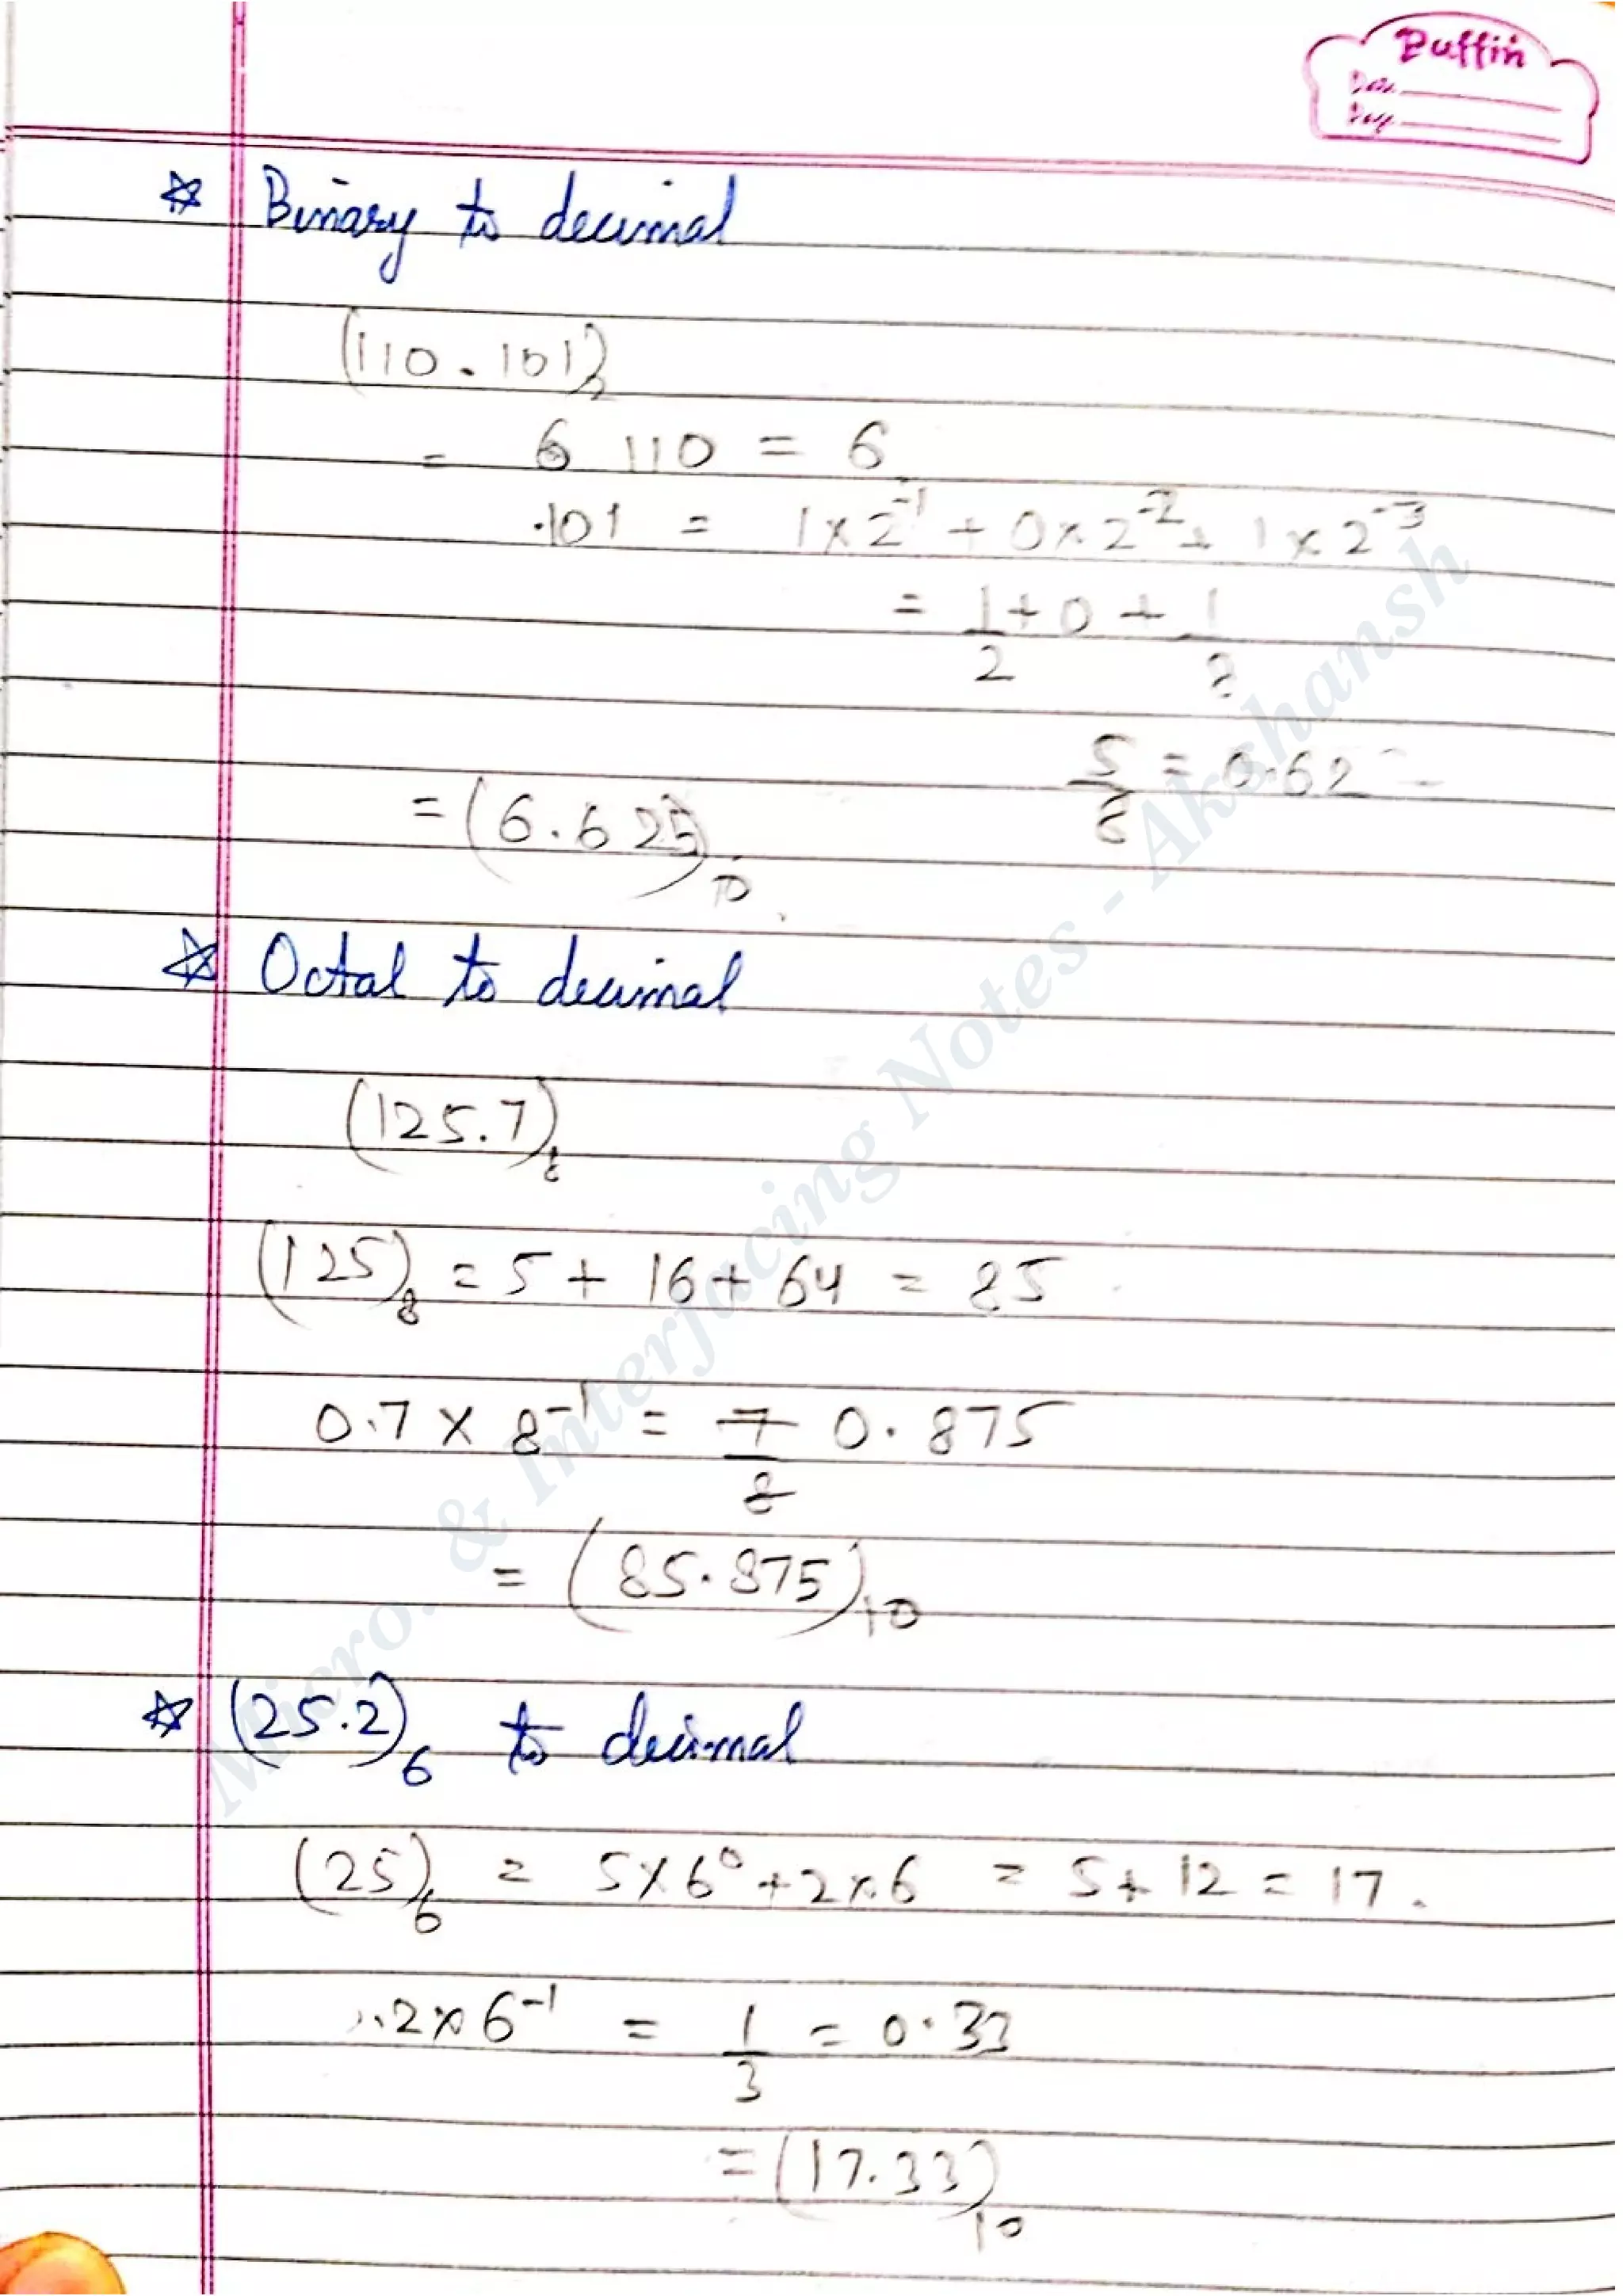 Puffin
Date
Page
☆ Binary to decimal
(110.101)₂
= 6 110 = 6
.101 = 1×2⁻¹ + 0×2⁻² + 1×2⁻³
= 1/2 + 0 + 1/8
5/8 = 0.62
= (6.625)₁₀
☆ Octal to decimal
(125.7)₈
(125)₈ = 5 + 16 + 64 = 85
0.7 × 8⁻¹ = 7/8 0.875
= (85.875)₁₀
☆ (25.2)₆ to decimal
(25)₆ = 5×6⁰ + 2×6 = 5 + 12 = 17.
.2×6⁻¹ = 1/3 = 0.33
= (17.33)₁₀
Micro. & Interfacing Notes - Akshansh